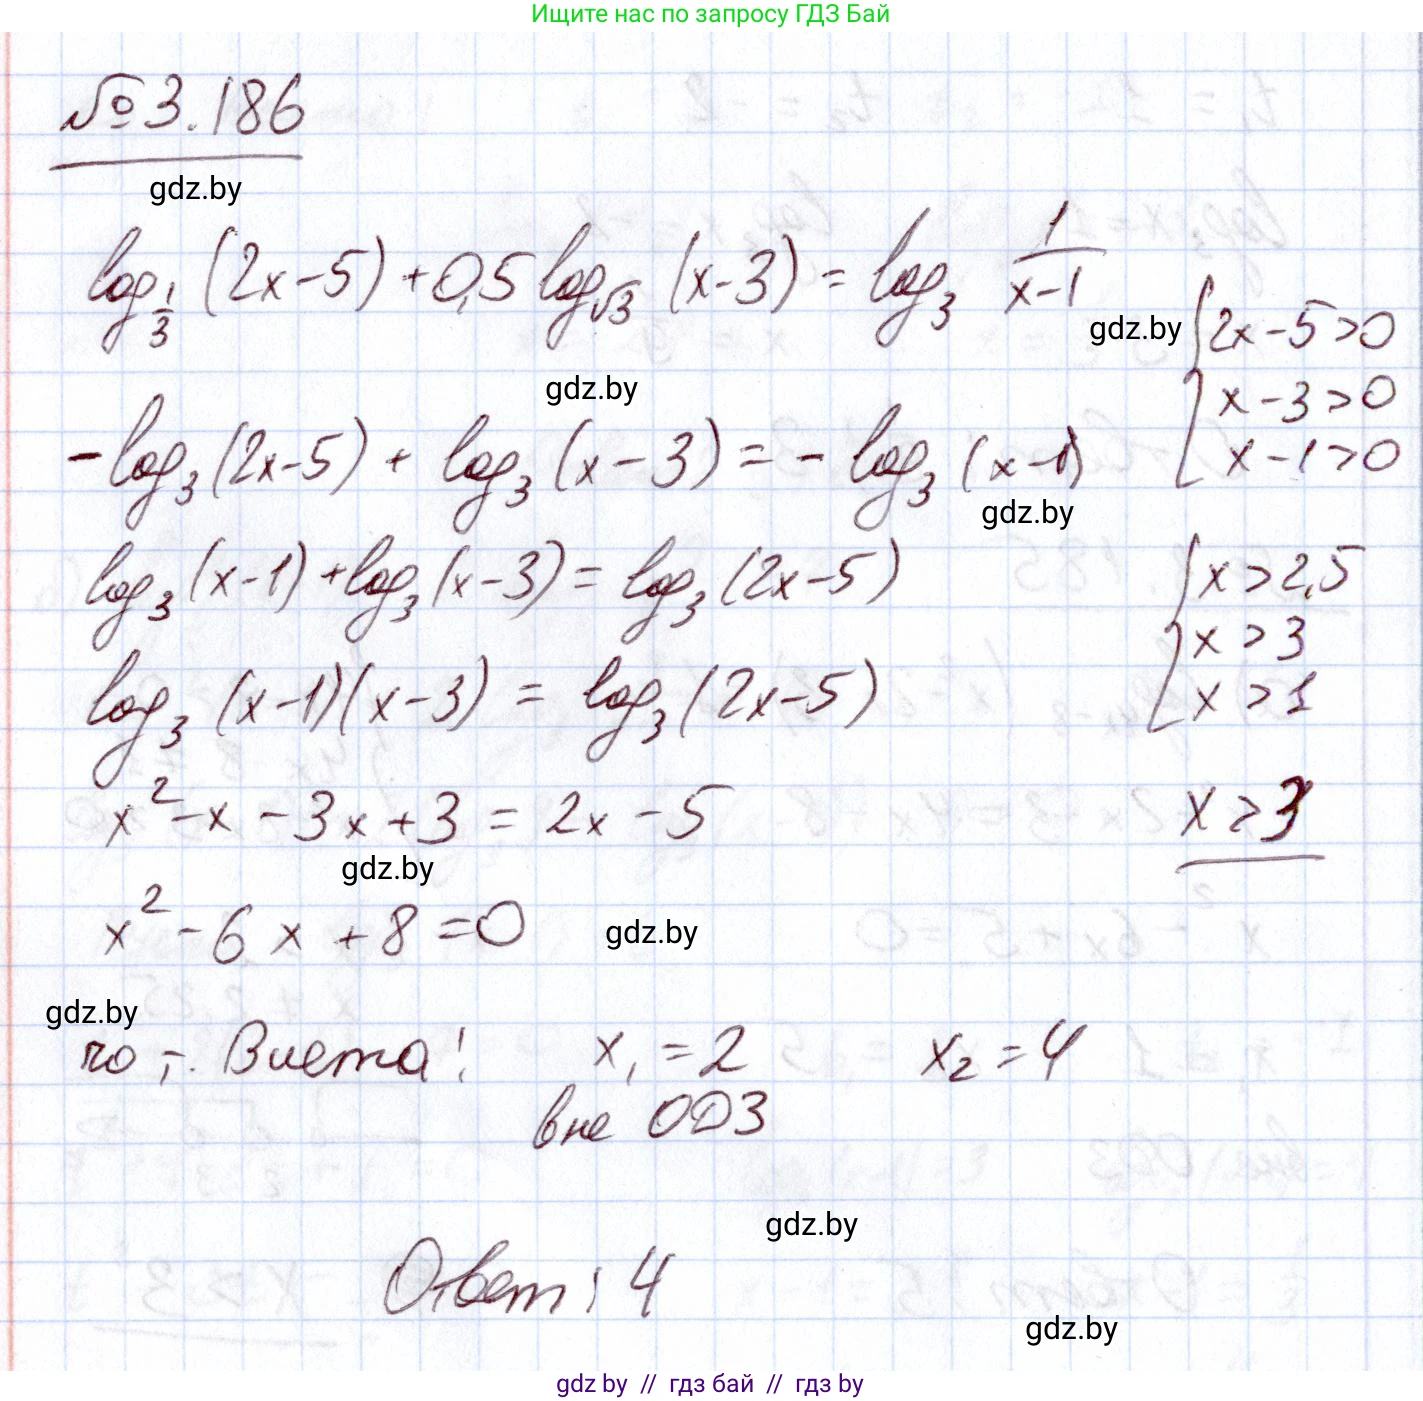 Ищите нас по запросу ГДЗ Бай
№3.186
gdz.by
log_{1/3} (2x-5) + 0,5 log_{√3} (x-3) = log_3 1/(x-1)
gdz.by
{ 2x-5>0
x-3>0
x-1>0
gdz.by
-log_3 (2x-5) + log_3 (x-3) = - log_3 (x-1)
gdz.by
log_3 (x-1) + log_3 (x-3) = log_3 (2x-5)
{ x>2,5
x>3
x>1
log_3 (x-1)(x-3) = log_3 (2x-5)
x² - x - 3x + 3 = 2x - 5
x > 3
gdz.by
x² - 6x + 8 = 0
gdz.by
gdz.by
по т. Виета: x₁ = 2 x₂ = 4
вне ОДЗ
gdz.by
Ответ: 4
gdz.by
gdz by // гдз бай // гдз by